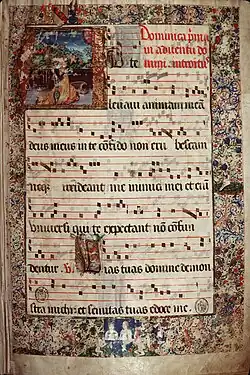 Dominica prima
in adventu do
mini introitus
d te
levavi animam meā
deus meus in te cōfido non eru bescam
neq irrideant me inimici mei et eīn
vniuersi qui te expectant nō cōfun
dentur. V ias tuas domine demon
stra michi: et semitas tuas edoce me.